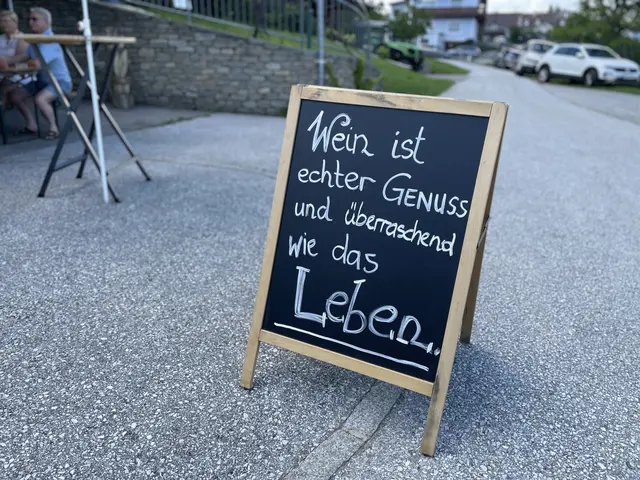 Wein ist
echter GENUSS
und überraschend
wie das
Leben.